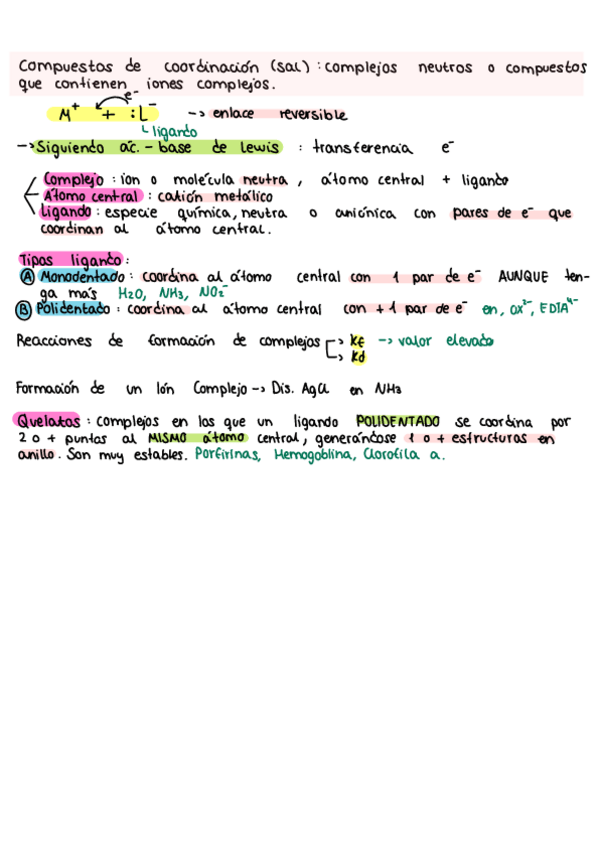 Compuestos de coordinación (sal) : complejos neutros o compuestos
que contienen iones complejos.
e⁻
M⁺ + :L⁻ -> enlace reversible
ligando
-> Siguiendo ác. - base de Lewis : transferencia e⁻
Complejo : ion o molécula neutra, átomo central + ligando
Átomo central : catión metálico
Ligando : especie química, neutra o aniónica con pares de e⁻ que
coordinan al átomo central.
Tipos ligando :
Ⓐ Monodentado : coordina al átomo central con 1 par de e⁻ AUNQUE ten-
ga más H2O, NH3, NO2⁻
Ⓑ Polidentado : coordina al átomo central con +1 par de e⁻ en, ox²⁻, EDTA⁴⁻
Reacciones de formación de complejos -> Kf -> valor elevado
-> Kd
Formación de un Ión Complejo -> Dis. AgCl en NH3
Quelatos : complejos en los que un ligando POLIDENTADO se coordina por
2 o + puntos al MISMO átomo central, generándose 1 o + estructuras en
anillo. Son muy estables. Porfirinas, Hemogoblina, Clorofila a.